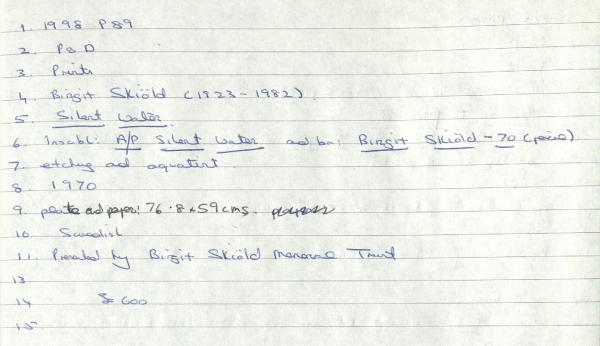 1. 1998 P89
2. P&D
3. Prints
4. Birgit Skiöld (1923-1982).
5. Silent Water.
6. Inscbl: A/P Silent Water and br: Birgit Skiöld - 70 (pencil)
7. etching and aquatint
8. 1970
9. plate and paper: 76.8 x 59 cms.
10. Swedish
11. Presented by Birgit Skiöld Memorial Trust
13.
14 £600
15.